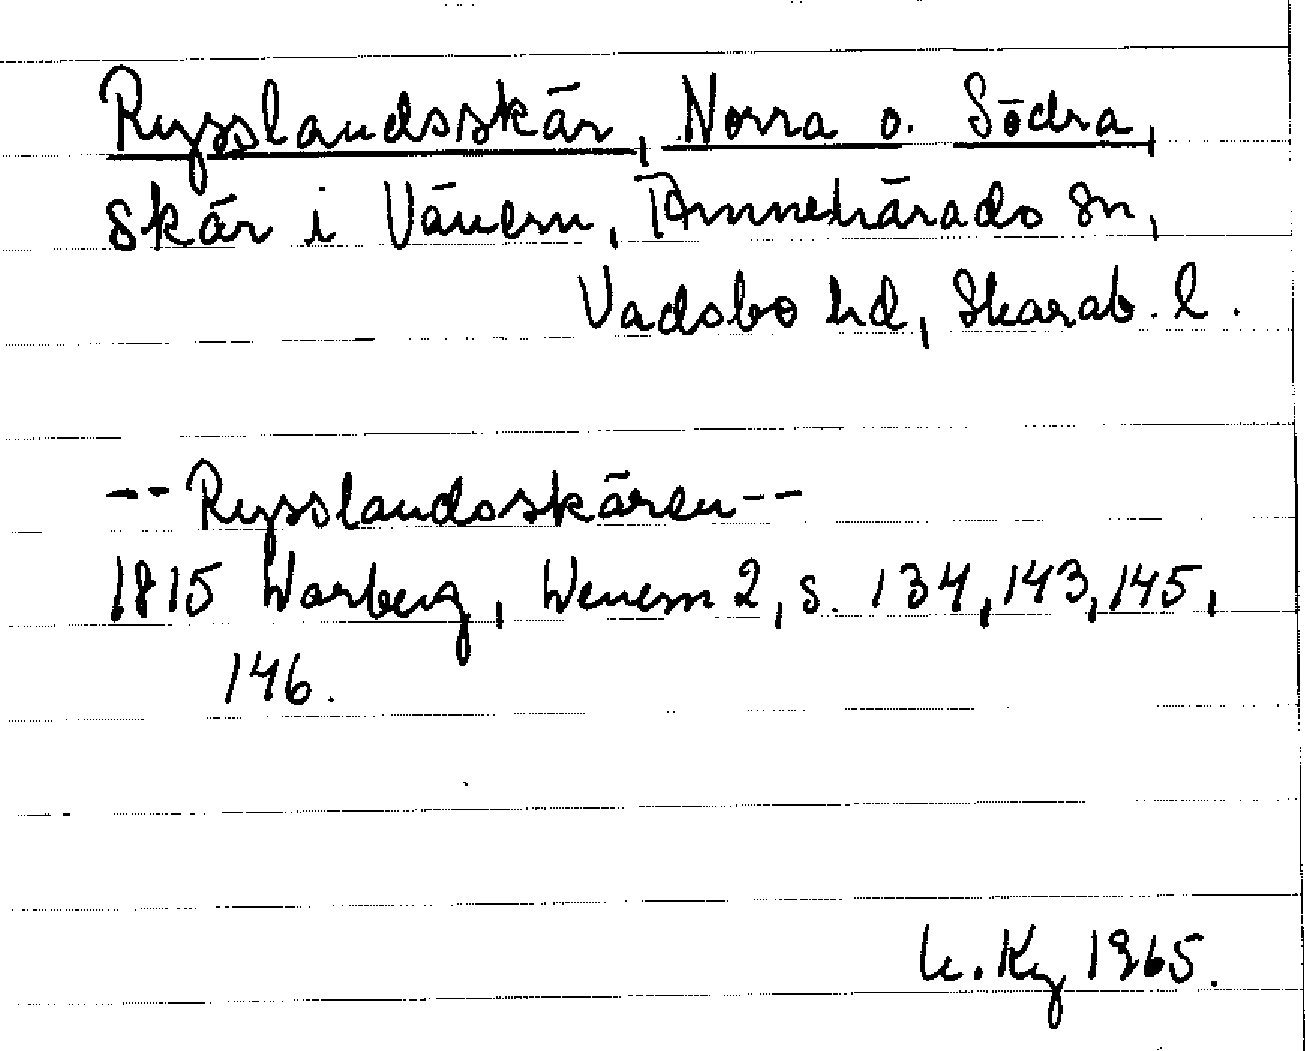 Rysslandsskär, Norra o. Södra,
skär i Vänern, Amnehärads sn,
Vadsbo hd, Skarab. l.
-- Rysslandsskären --
1815 Warberg, Wenern 2, s. 134, 143, 145,
146.
Ky 1965.